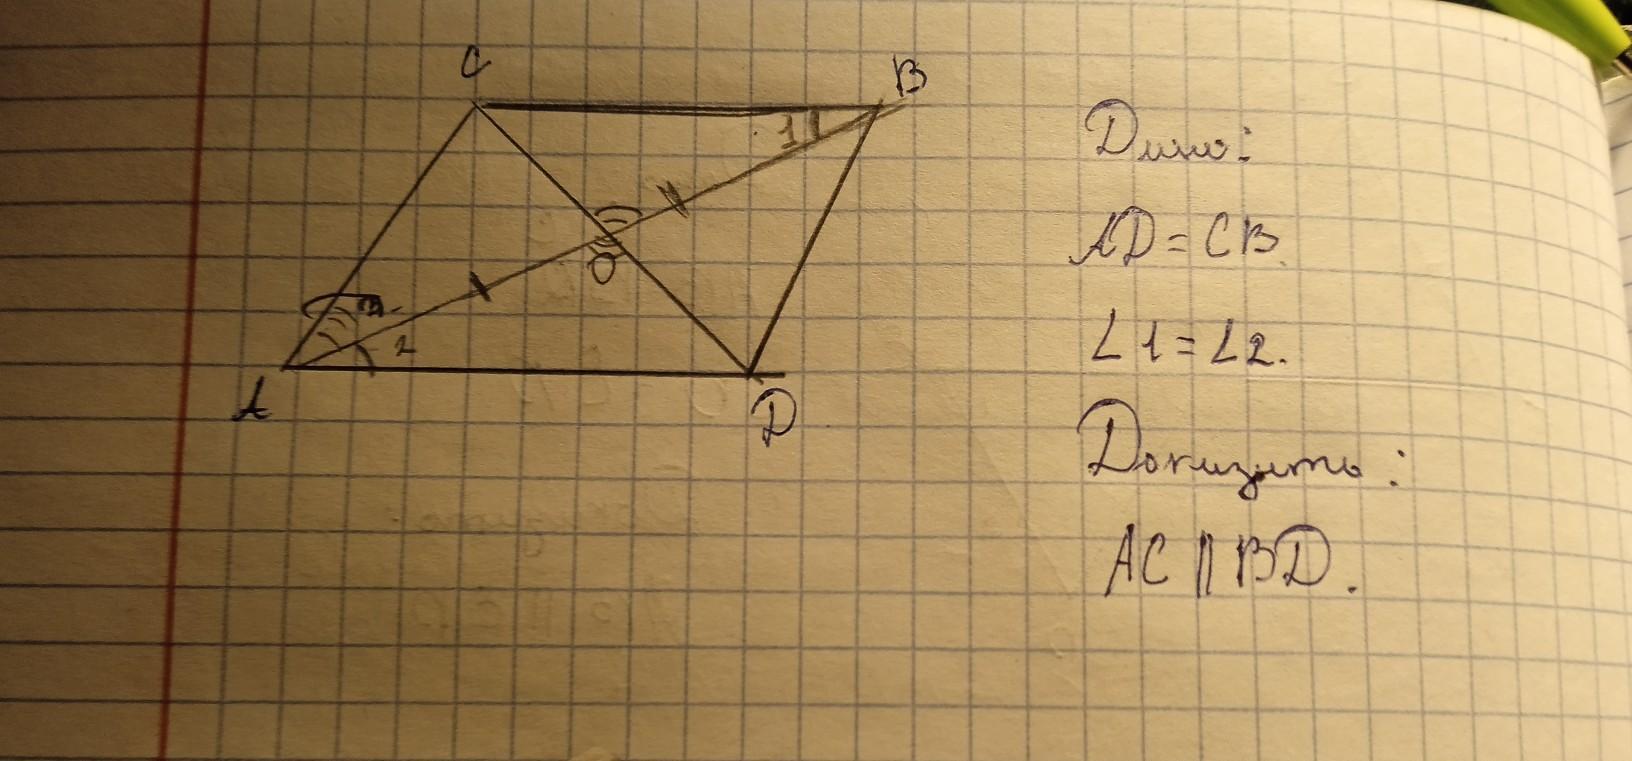 C
B
1
O
2
A
D
Дано:
AD = CB.
∠1 = ∠2.
Доказать:
AC || BD.